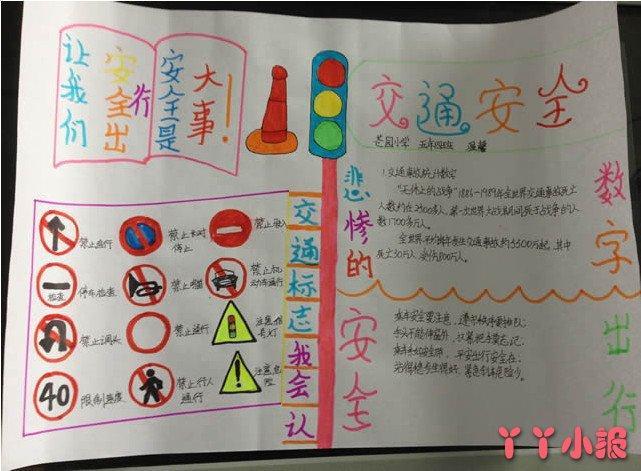 让我们
安全出行
安全是
大事!
交通安全
芒园小学 五年四班 温馨
悲惨的
数字
1.交通事故统计数字
"无休止的战争"1886-1989年全世界交通事故死亡
人数约在2900多人,第一次世界大战期间死于战争的人
数1700多万人。
全世界平均每年发生交通事故约3500万起,其中
死亡30万人,受伤800万人。
交通标志我会认
禁止直行
禁止长时
停止
禁止驶入
检查
停车检查
禁止鸣喇
禁止机
动车通行
禁止调头
禁止通行
注意信
号灯
40
限制速度
禁止行人
通行
注意危
险
安全
出行
乘车安全要注意,遵守秩序要排队;
手头不能伸窗外,
平安出行安全在;
丫丫小报